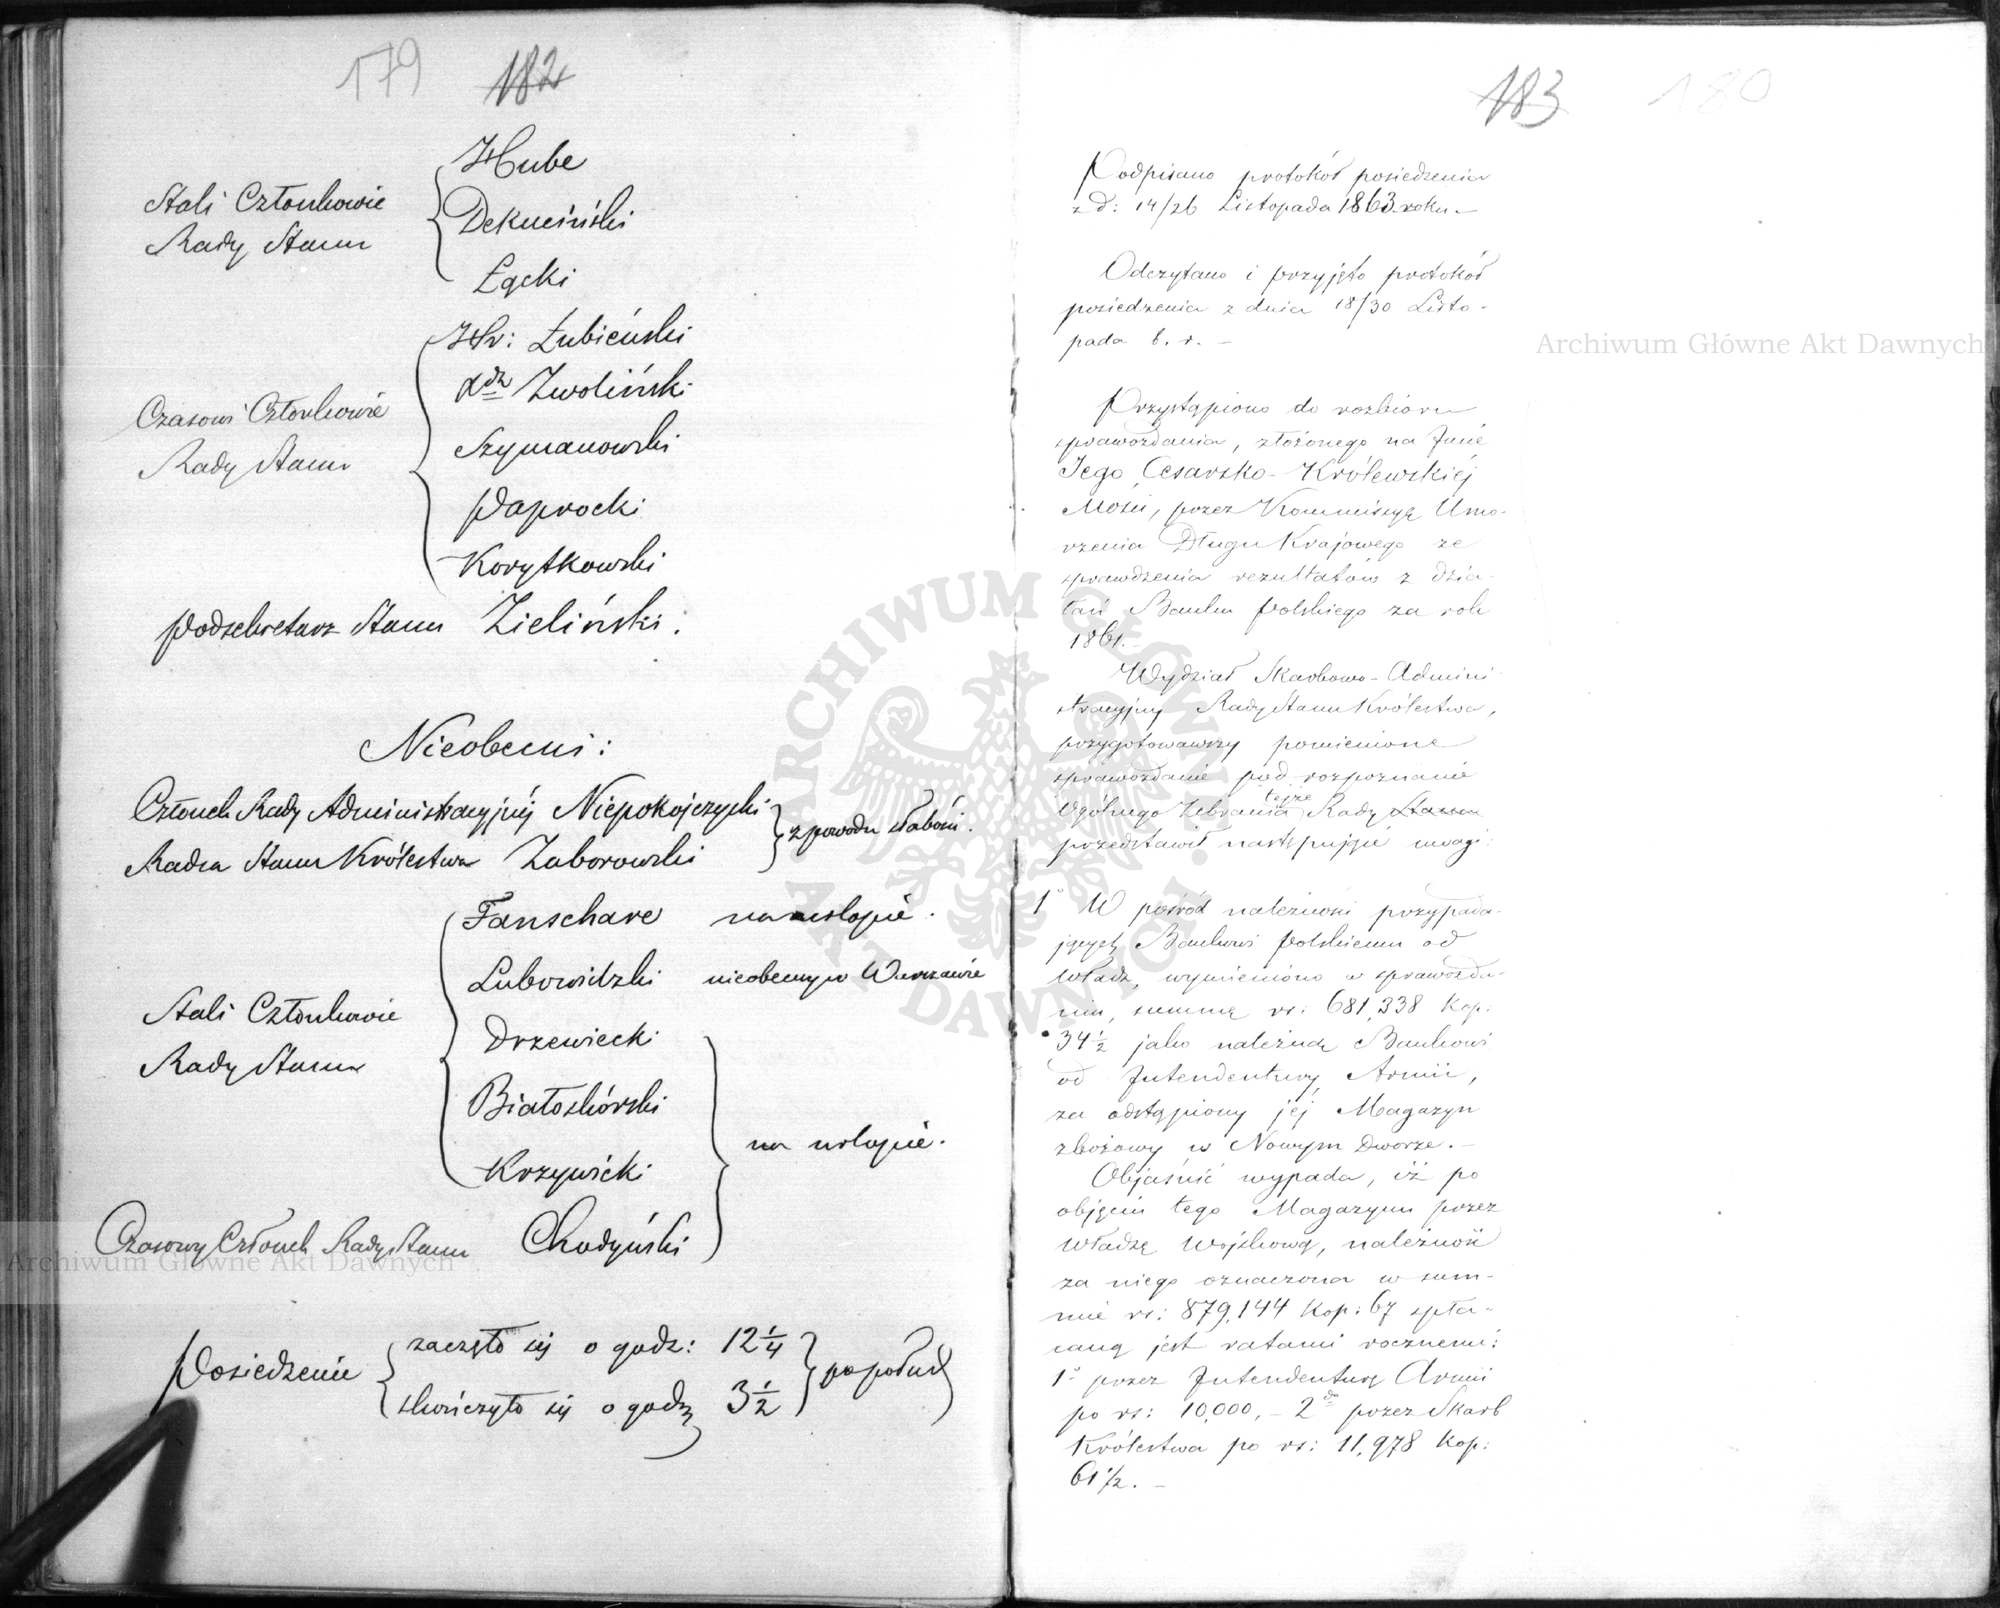 179 182
Stali Członkowie
Rady Stanu
Hube
Dekuciński
Łącki
Czasowi Członkowie
Rady Stanu
Hr: Łubieński
Xdz Zwoliński
Szymanowski
Paprocki
Korytkowski
Podsekretarz Stanu Zieliński.
Nieobecni:
Członek Rady Administracyjnej Niepokojczycki
Radca Stanu Królestwa Zaborowski
z powodu słabości.
Stali Członkowie
Rady Stanu
Fanschave na urlopie.
Lubowidzki nieobecny w Warszawie
Drzewiecki
Białoskórski
Krzywicki
Czasowy Członek Rady Stanu Chodyński
na urlopie.
Posiedzenie
zaczęło się o godz: 12 1/4
skończyło się o godz 3 1/2
popołud
183 180
Podpisano protokół posiedzenia
z d: 14/26 Listopada 1863 roku.
Odczytano i przyjęto protokół
posiedzenia z dnia 18/30 Listo-
pada b. r. –
Przystąpiono do rozbioru
sprawozdania, złożonego na Imię
Jego Cesarsko-Królewskiéj
Mości, przez Kommissyą Umo-
rzenia Długu Krajowego ze
sprawdzenia rezultatów z dzia-
łań Banku Polskiego za rok
1861. –
Wydział Skarbowo-Admini-
stracyjny Rady Stanu Królestwa,
przygotowawszy pomienione
sprawozdanie pod rozpoznanie
Ogólnego Zebrania tejże Rady Stanu
przedstawił następujące uwagi:
1° W pośród należności przypada-
jących Bankowi Polskiemu od
Władz, wymieniono w sprawozda-
niu, summę rs: 681,338 Kop:
34 1/2 jako należną Bankowi
od Intendentury Armii,
za odstąpiony jéj Magazyn
zbożowy w Nowym Dworze. –
Objaśnić wypada, iż po
objęciu tego Magazynu przez
Władzę Wojskową, należność
za niego oznaczona w sum-
mie rs: 879,144 Kop: 67 spła-
caną jest ratami rocznemi:
1° przez Intendenturę Armii
po rs: 10,000, – 2do przez Skarb
Królestwa po rs: 11,978 Kop:
61 1/2. –
Archiwum Główne Akt Dawnych
Archiwum Główne Akt Dawnych
ARCHIWUM GŁÓWNE AKT DAWNYCH